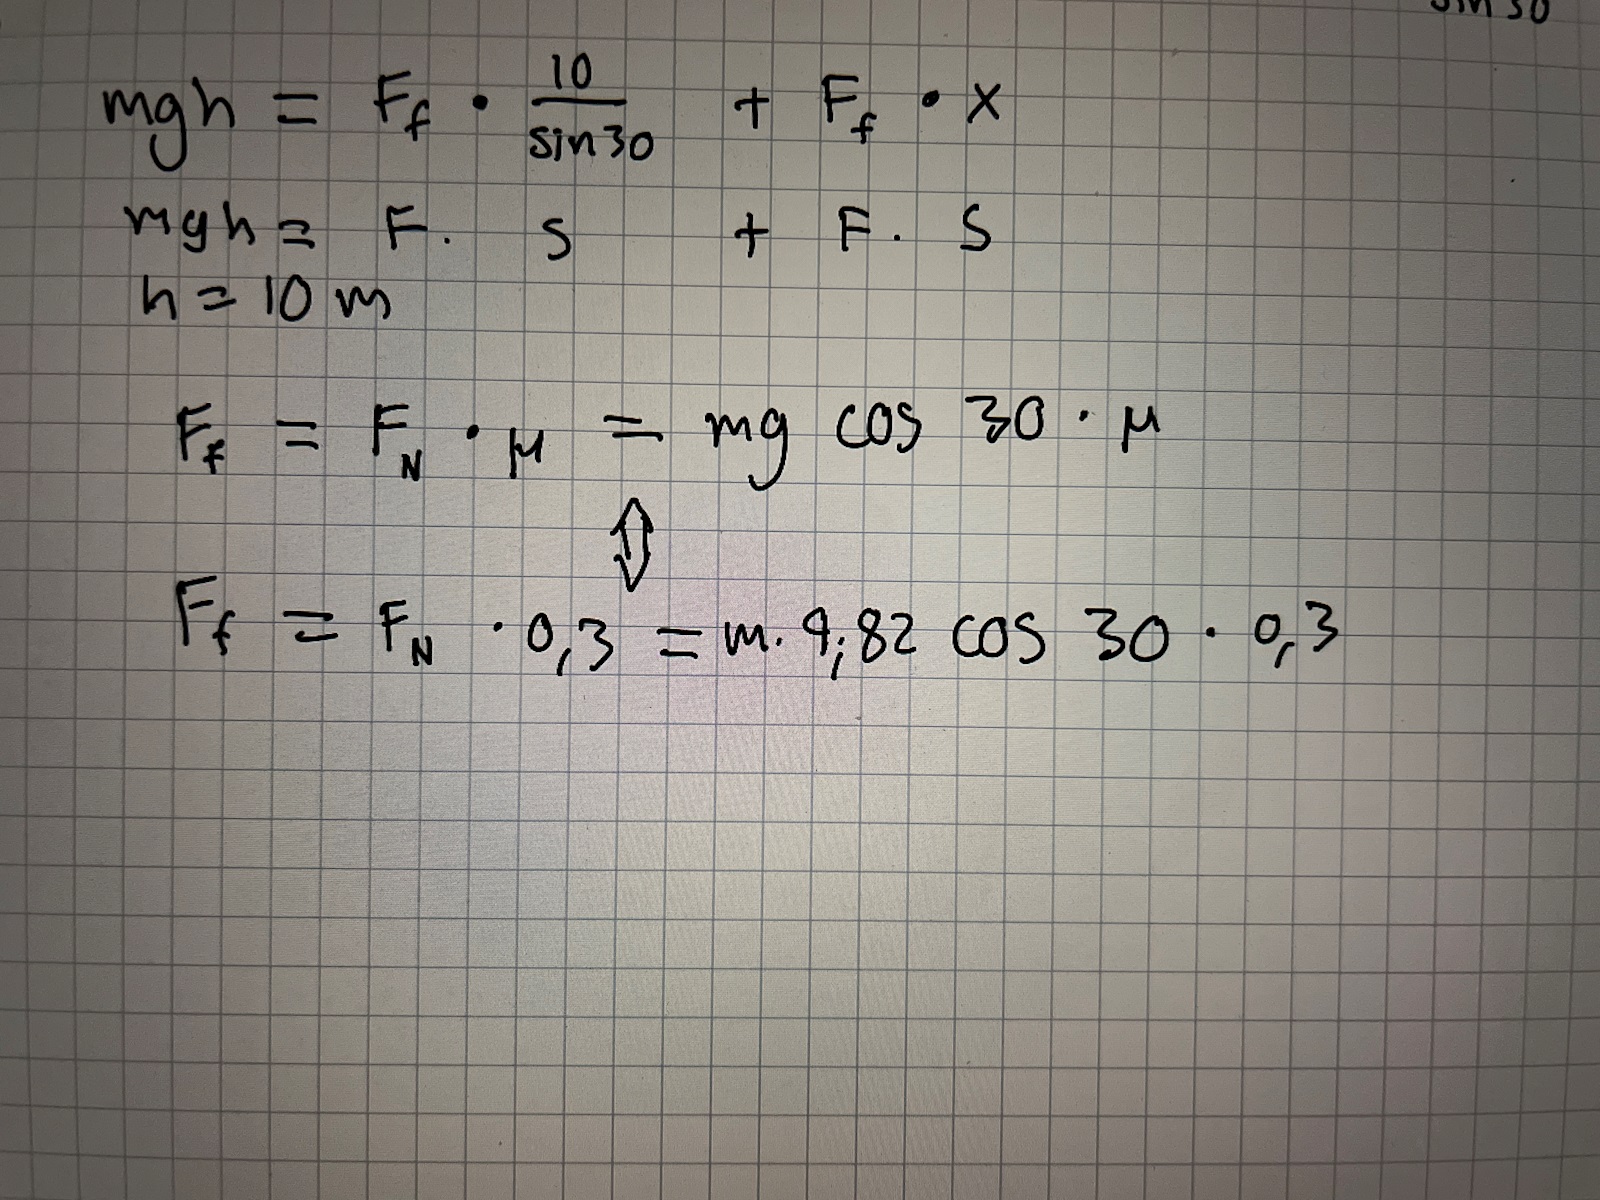 sin 30
mgh = F_f · 10/sin30 + F_f · x
mgh = F. s + F. s
h = 10 m
F_f = F_N · μ = mg cos 30 · μ
⇕
F_f = F_N · 0,3 = m. 9,82 cos 30 · 0,3